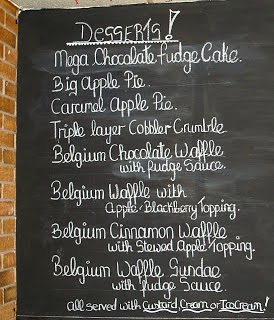 DESSERTS!
Mega Chocolate fudge Cake.
Big Apple Pie.
Caramel Apple Pie.
Triple layer Cobbler Crumble
Belgium Chocolate Waffle
with fudge Sauce.
Belgium Waffle with
Apple-Blackberry Topping.
Belgium Cinnamon Waffle
with Stewed Apple Topping.
Belgium Waffle Sundae
with fudge Sauce.
all served with Custard, Cream or IceCream!